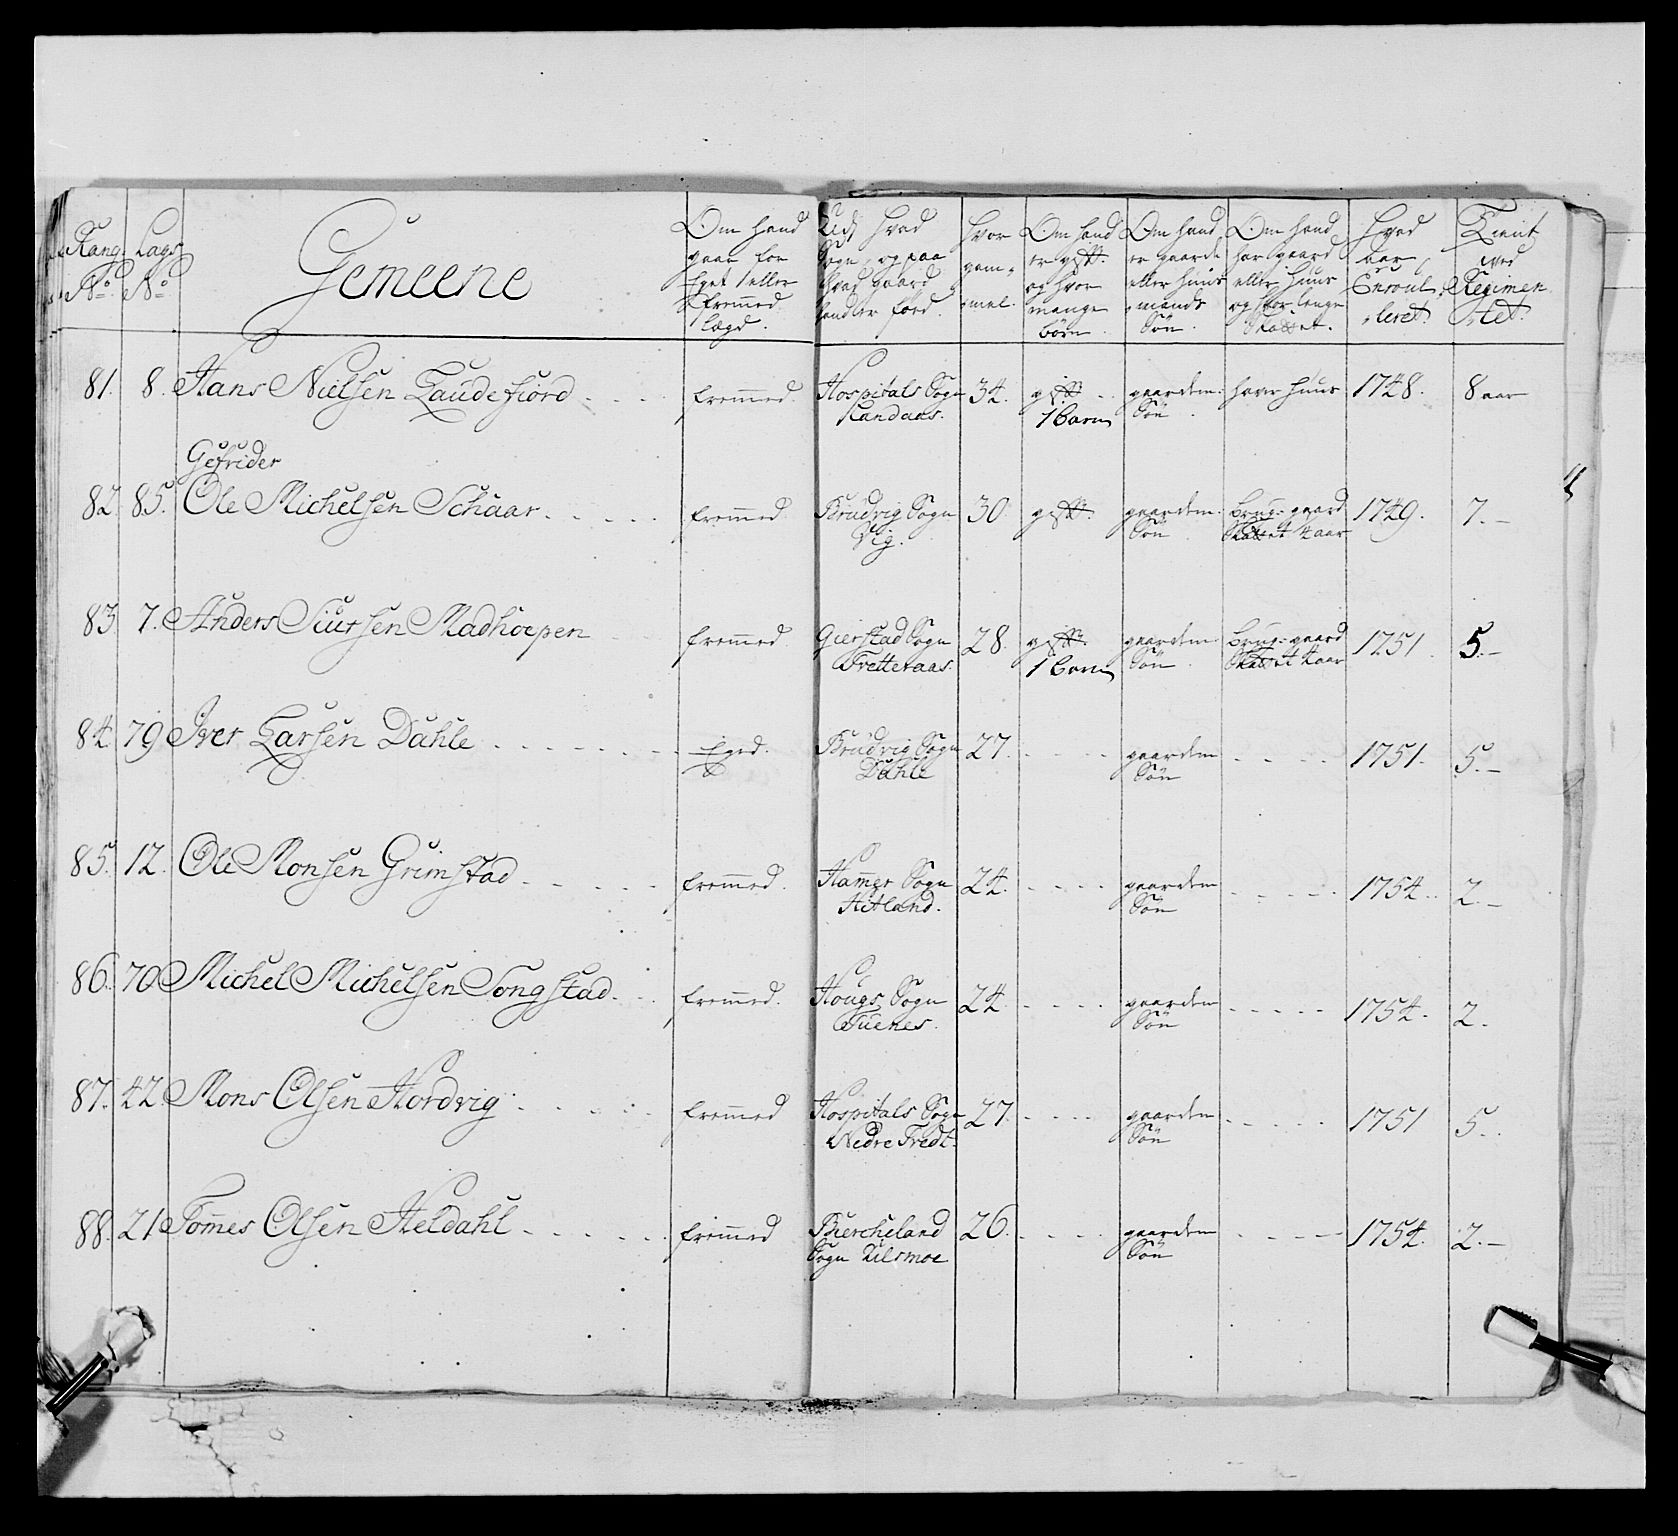 Rang No. | Lags No. | Gemeene | Om hand gaar for Eget eller fremmed lægd. | Udj hvad Sogn, og paa hvad gaard hand er föed. | Hvor gam-mel. | Om hand er gift. og hvor mange börn. | Om hand er gaards eller huus mands Sön. | Om hand har gaard eller huus og hvor lenge Skattet. | Hvad aar Enroul-leret. | Tient ved Regimen-tet.
81. | 8. | Hans Nielsen Laudefiord | fremmed. | Hospitals Sogn Randaas. | 34. | gift 1 barn | gaardem: Sön. | haver huus | 1748. | 8 aar
Gefrider
82. | 85. | Ole Michelsen Schaar | fremmed. | Brudvig Sogn Vig. | 30 | gift. | gaardem: Sön. | brug: gaard Skattet 4 aar | 1749. | 7.-
83 | 7. | Anders Siursen Madhoepen | fremmed. | Gierstad Sogn Tretteraas | 28. | gift. 1 barn | gaardem: Sön. | brug: gaard Skattet 4 aar | 1751. | 5.-
84. | 79 | Iver Larsen Dahle | Eged. | Brudvig Sogn Dahle | 27. | gaardem Sön | 1751. | 5.-
85. | 12. | Ole Monsen Grimstad | fremmed. | Hammer Sogn Hitland. | 24. | gaardem Sön | 1754. | 2.-
86. | 70 | Michel Michelsen Songstad | fremmed. | Hougs Sogn Tuenes. | 24. | gaardem Sön | 1754. | 2.
87. | 42. | Mons Olsen Hordvig | fremmed | Hospitals Sogn Nedre Tredt. | 27. | gaardem Sön | 1751 | 5.
88. | 21 | Tommes Olsen Heldahl | fremmed | Biercheland Sogn Kilsmoe | 26. | gaardem Sön | 1754. | 2.-